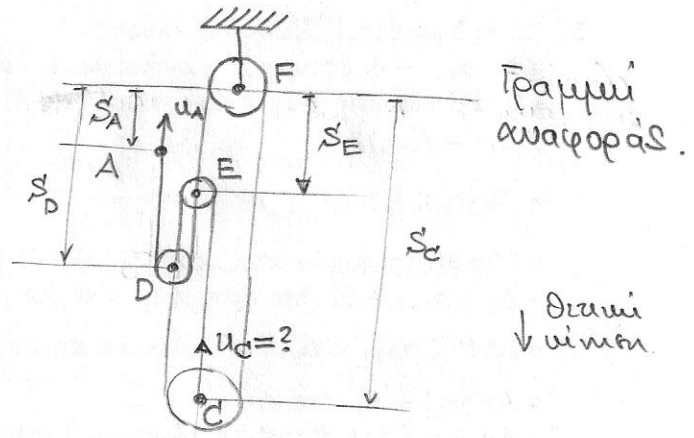 F
Γραμμή
αναφοράς.
S_A
u_A
S_E
A
E
S_D
S_C
D
θετική
κίνηση.
u_C=?
C